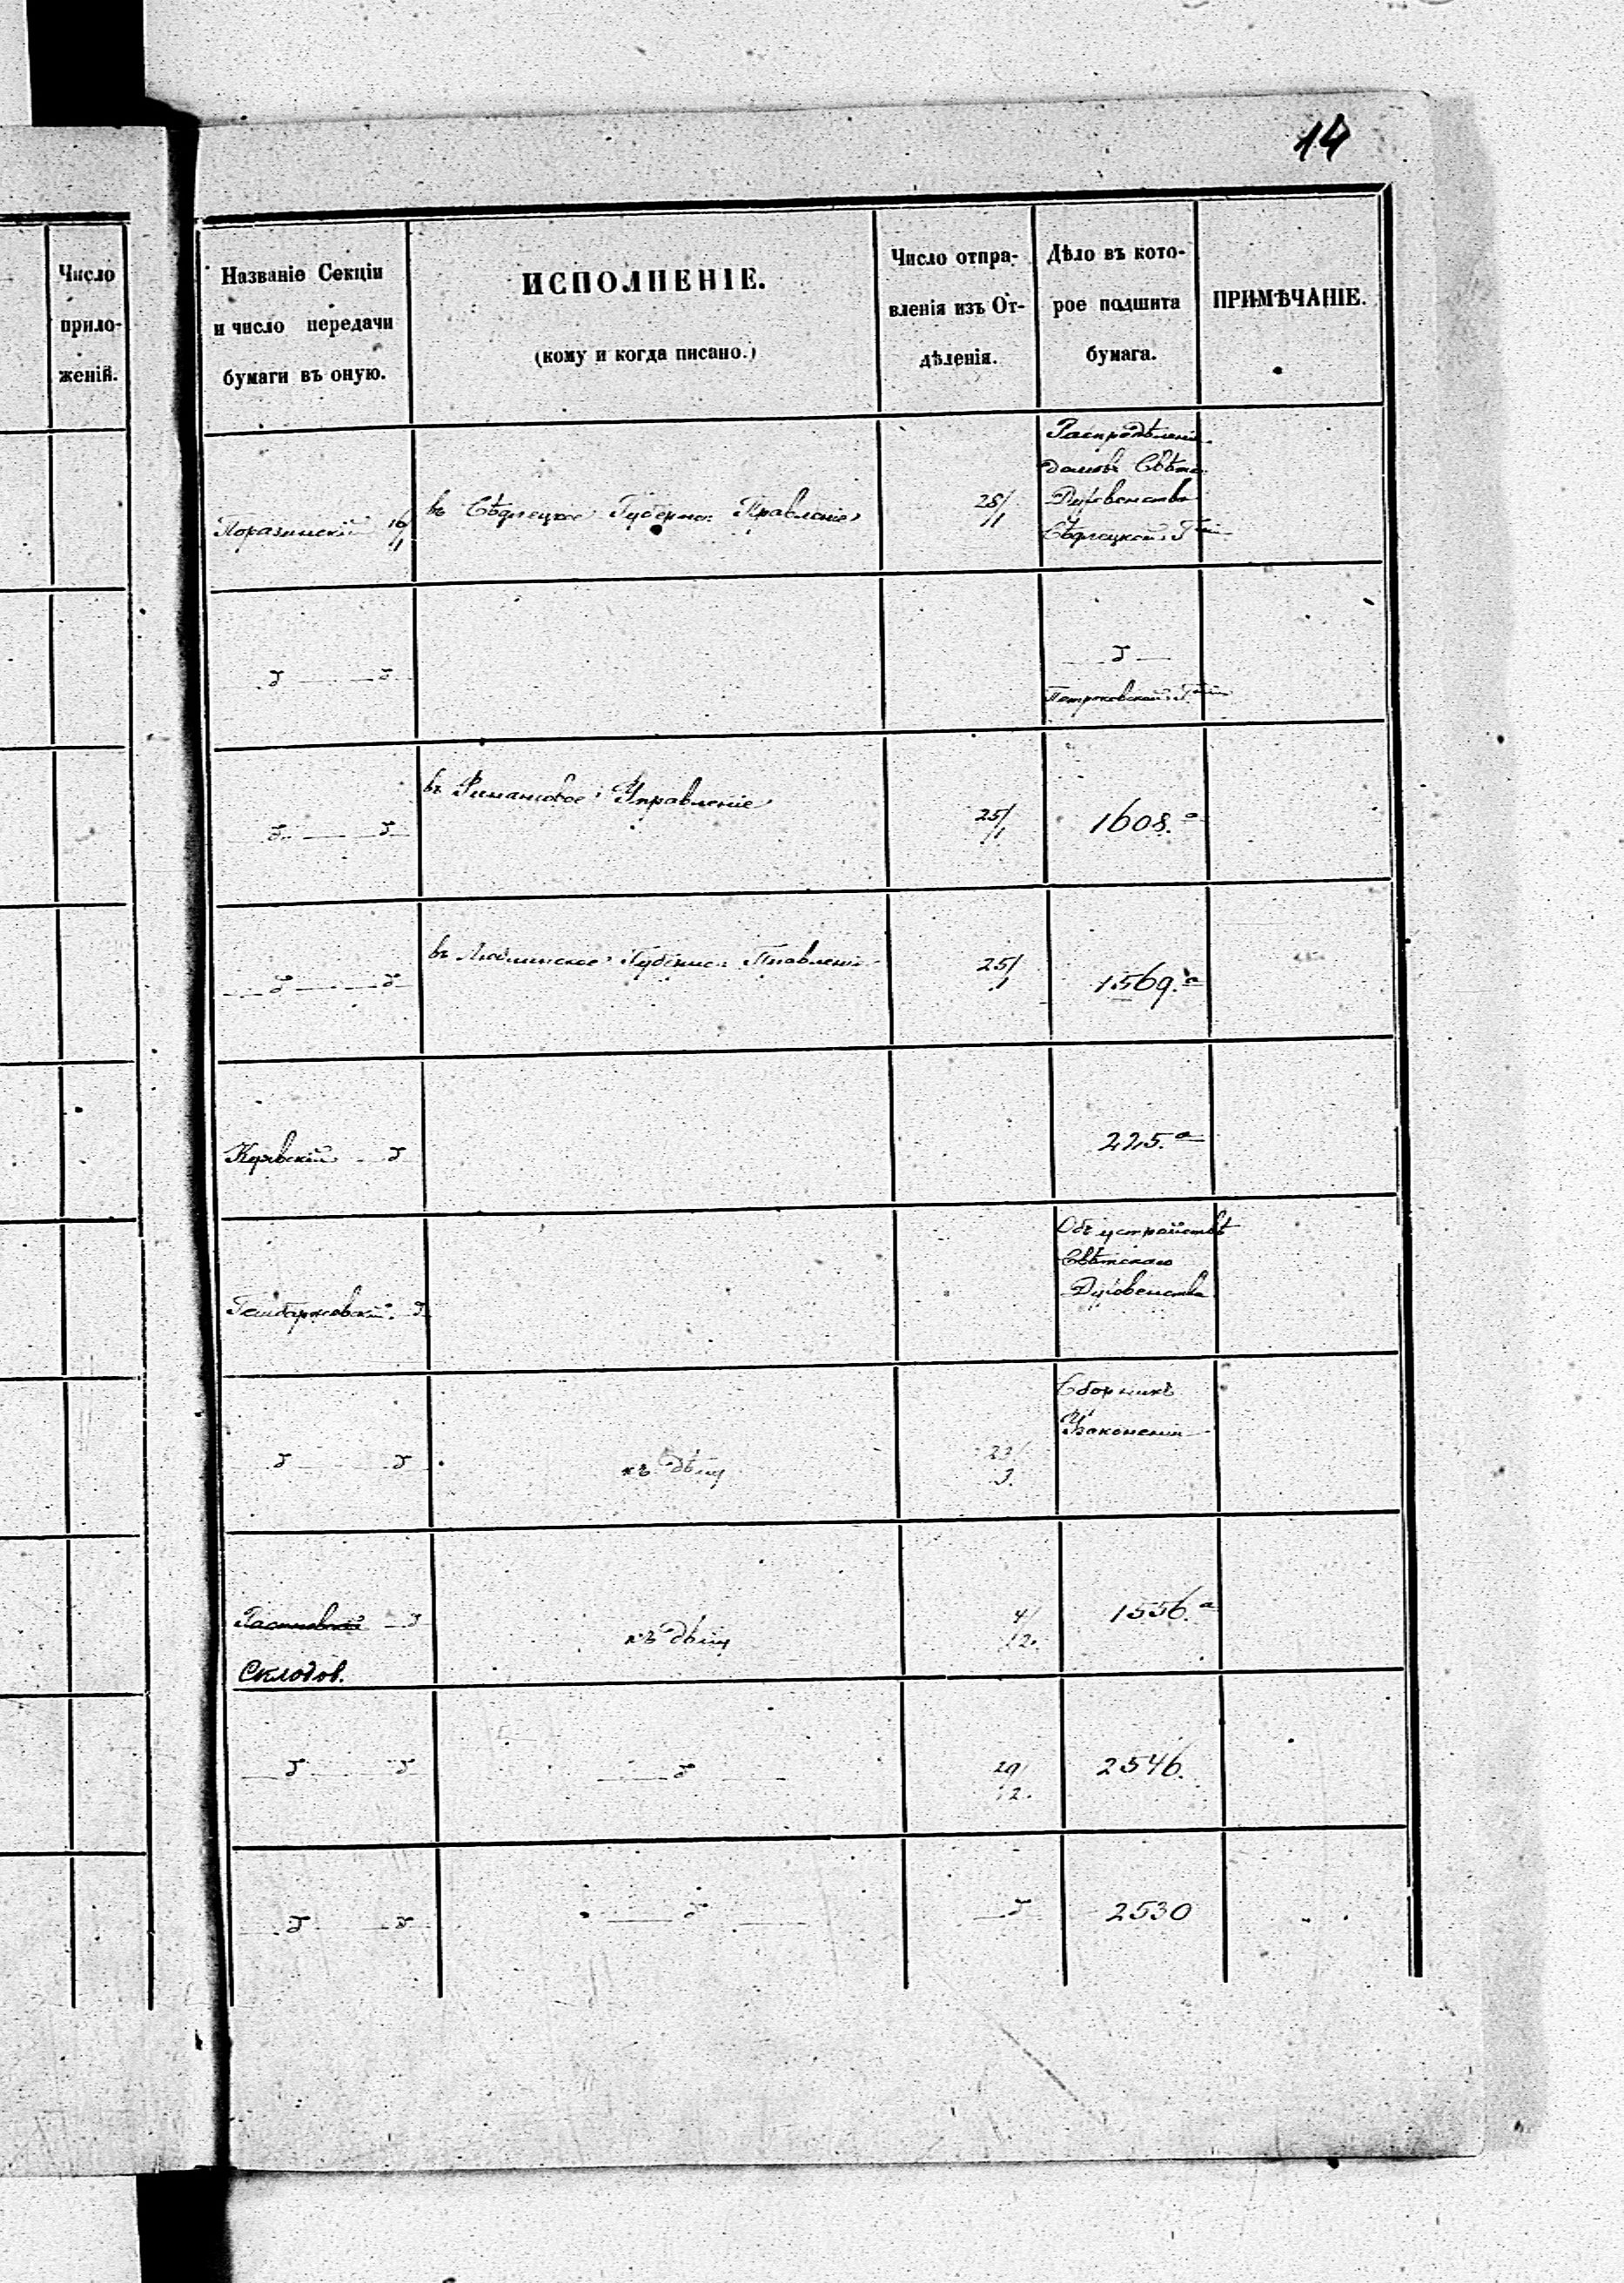 14
Число
прило-
женій.
Названіе Секціи
и число передачи
бумаги въ оную.
ИСПОЛНЕНІЕ.
(кому и когда писано.)
Число отпра-
вленія изъ От-
дѣленія.
Дѣло въ кото-
рое подшита
бумага.
ПРИМѢЧАНІЕ.
Поразинскій 16/1
въ Сѣдлецкое Губернс. Правленіе
28/1
Распредѣленіе
домовъ Свѣтс.
Духовенства
Сѣдлецкой Г
Петроковской Г
въ Финансовое Управленіе
25/1
1608.а
въ Люблинское Губернс. Правленіе
25/1
1569.а
225.а
Объ устройствѣ
Свѣтскаго
Духовенства
къ дѣлу
23/3.
Сборникъ
Узаконеній
Склодов.
къ дѣлу
4/12.
1556.а
29/12.
2546.
2530